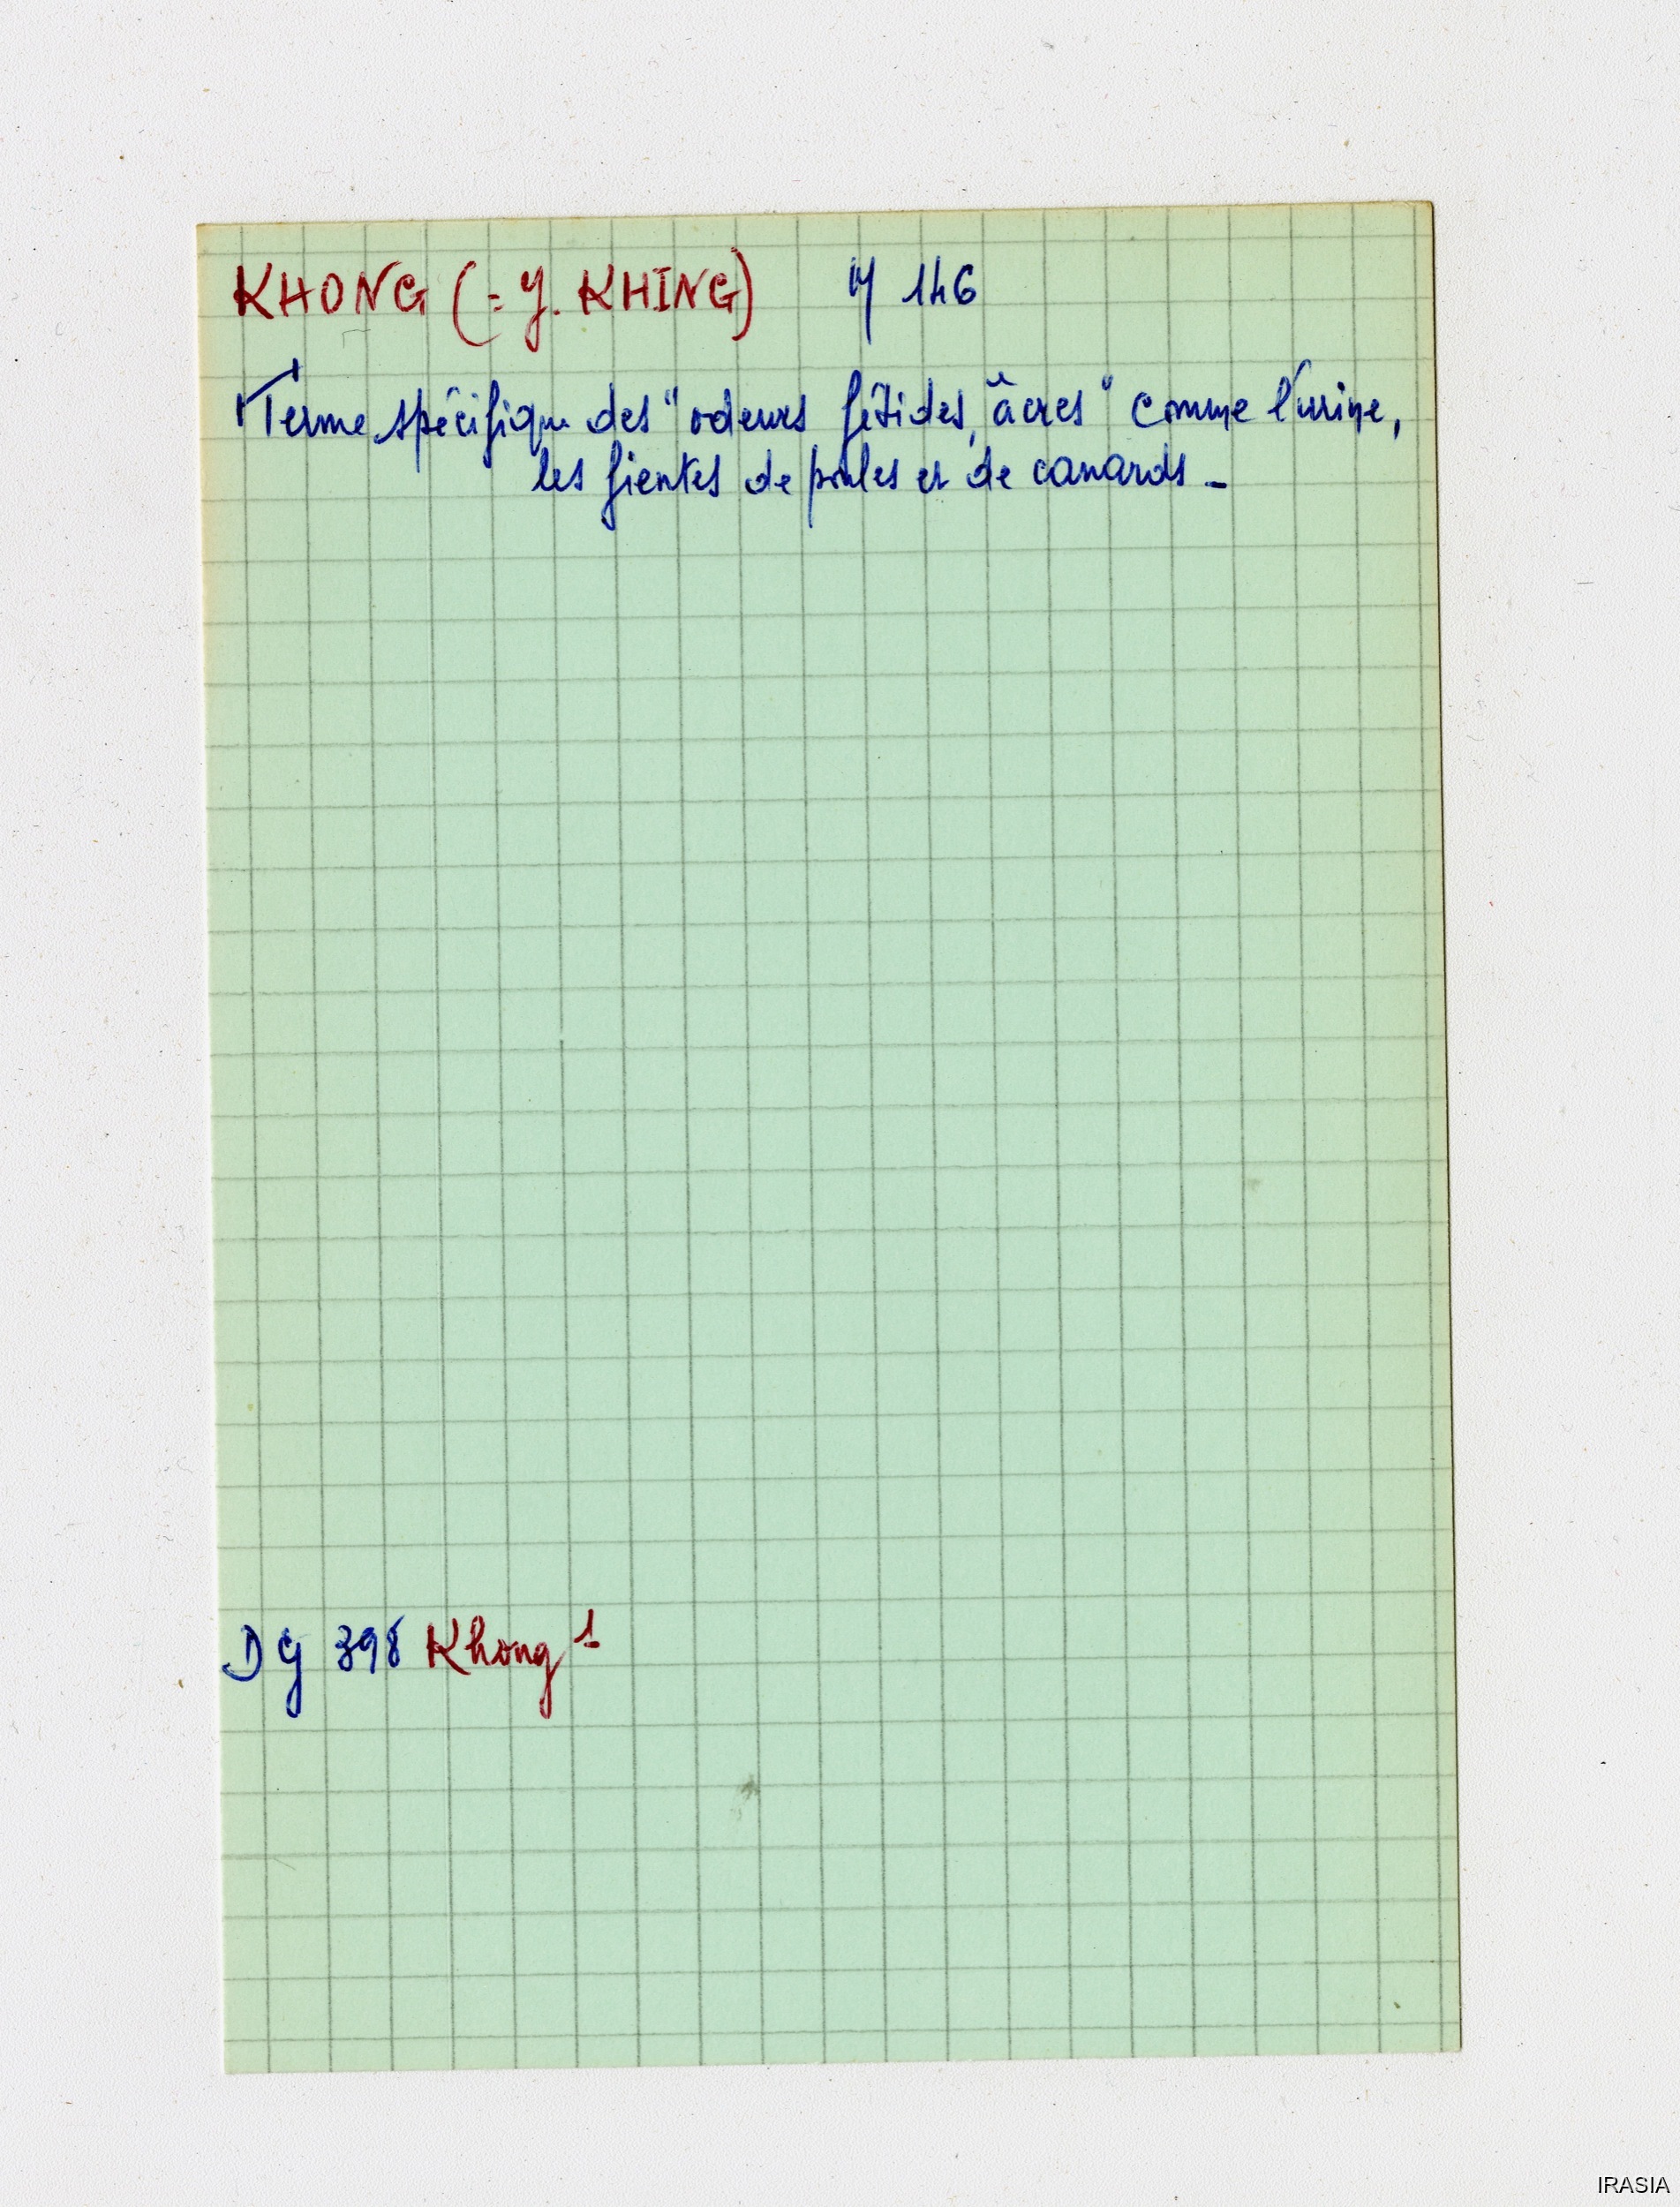 KHONG (= Y. KHING) Y 146
Terme spécifique des "odeurs fétides, âcres" comme l'urine,
les fientes de poules et de canards -
DG 398 Khong 1
IRASIA